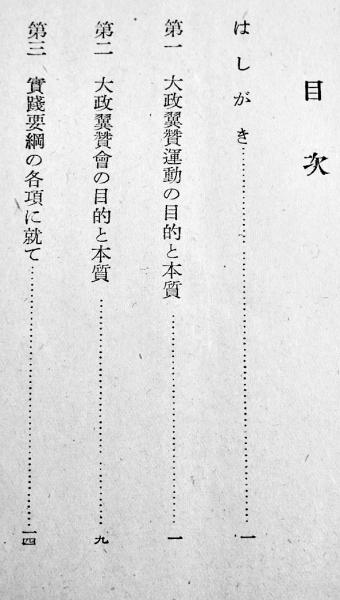 目次
はしがき…………………………………………一
第一　大政翼贊運動の目的と本質……………………一
第二　大政翼贊會の目的と本質………………………九
第三　實踐要綱の各項に就て…………………………一四